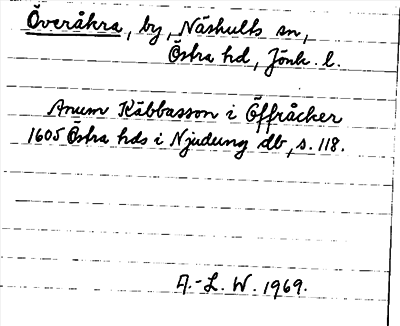 Överåkra, by, Näshults sn,
Östra hd, Jönk. l.
Anum Käbbasson i Öffråcker
1605 Östra hds i Njudung db, s. 118.
A.-L. W. 1969.